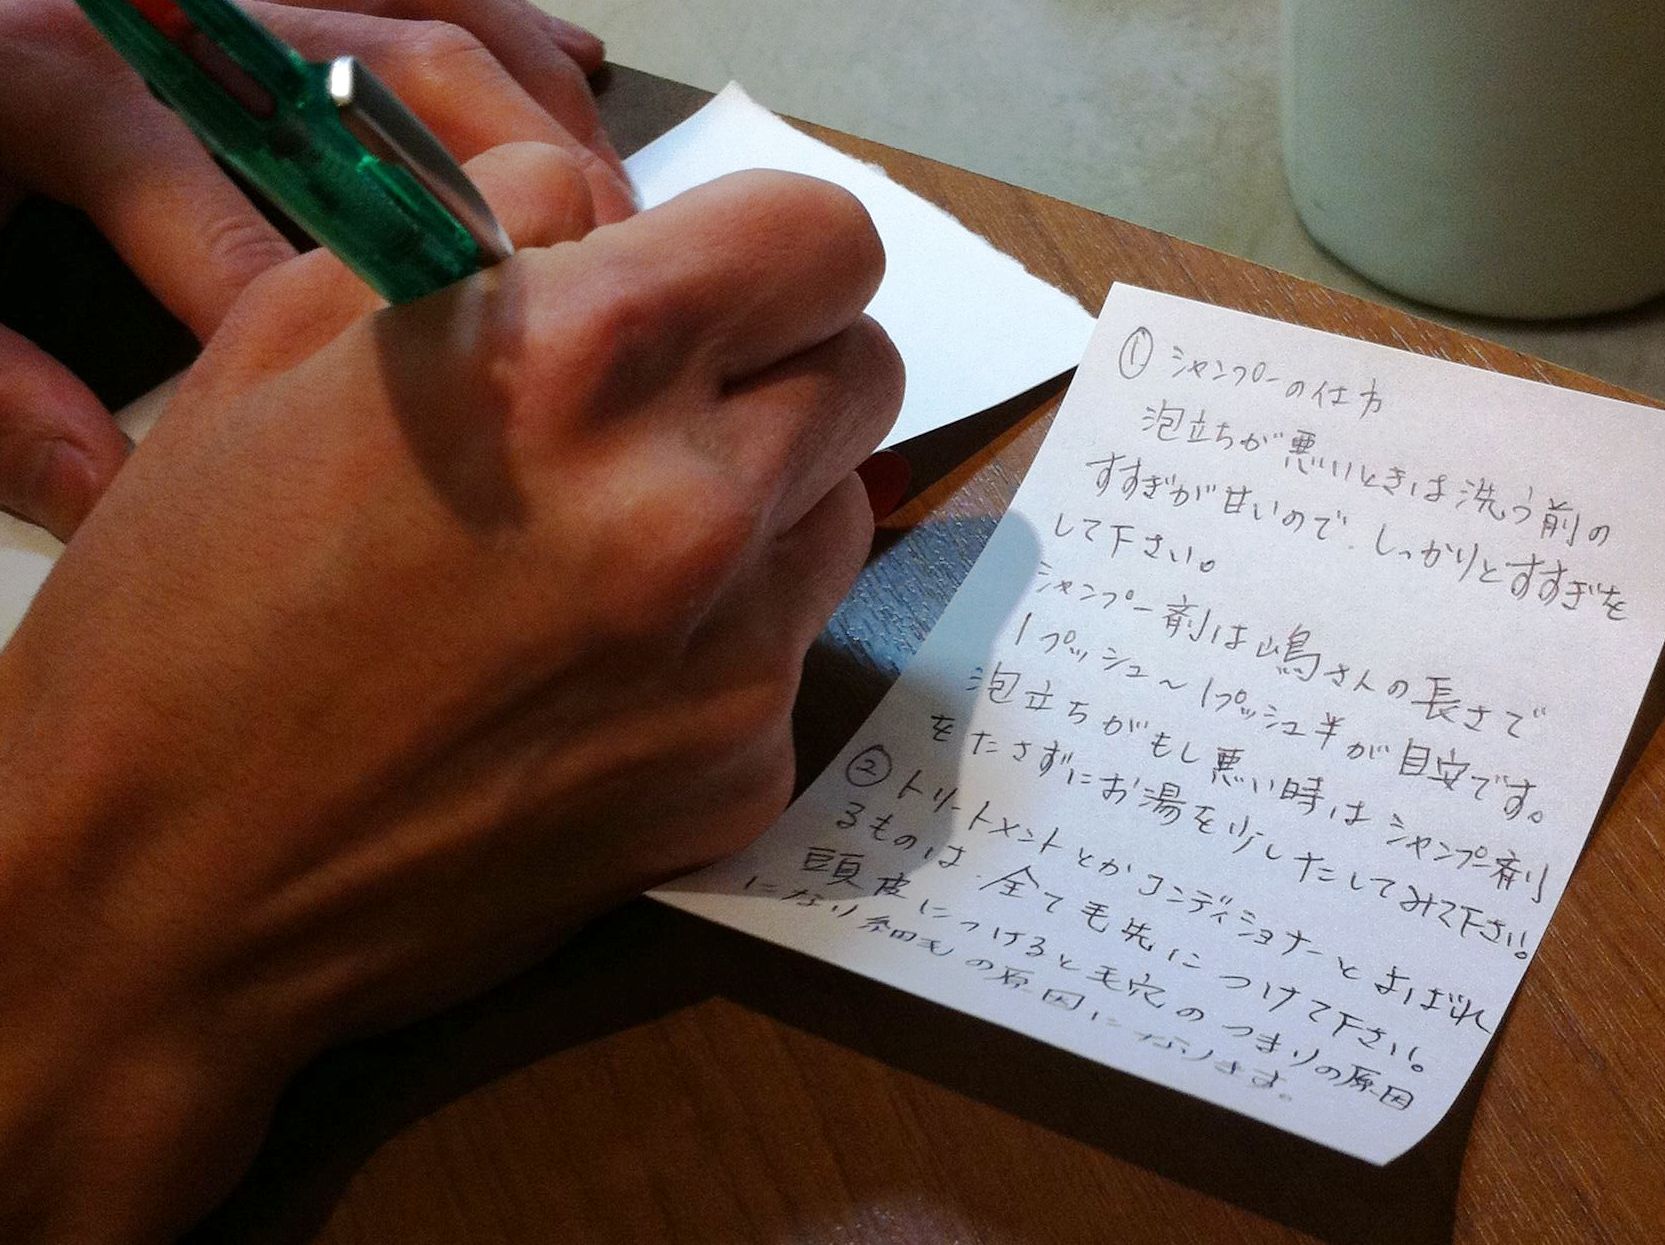 ① シャンプーの仕方
泡立ちが悪いときは洗う前の
すすぎが甘いので、しっかりとすすぎを
して下さい。
シャンプー剤は嶋さんの長さで
1プッシュ〜1プッシュ半が目安です。
泡立ちがもし悪い時はシャンプー剤
をたさずにお湯を少したしてみて下さい。
② トリートメントとかコンディショナーとよばれ
るものは、全て毛先につけて下さい。
頭皮につけると毛穴のつまりの原因
になり細毛の原因になります。